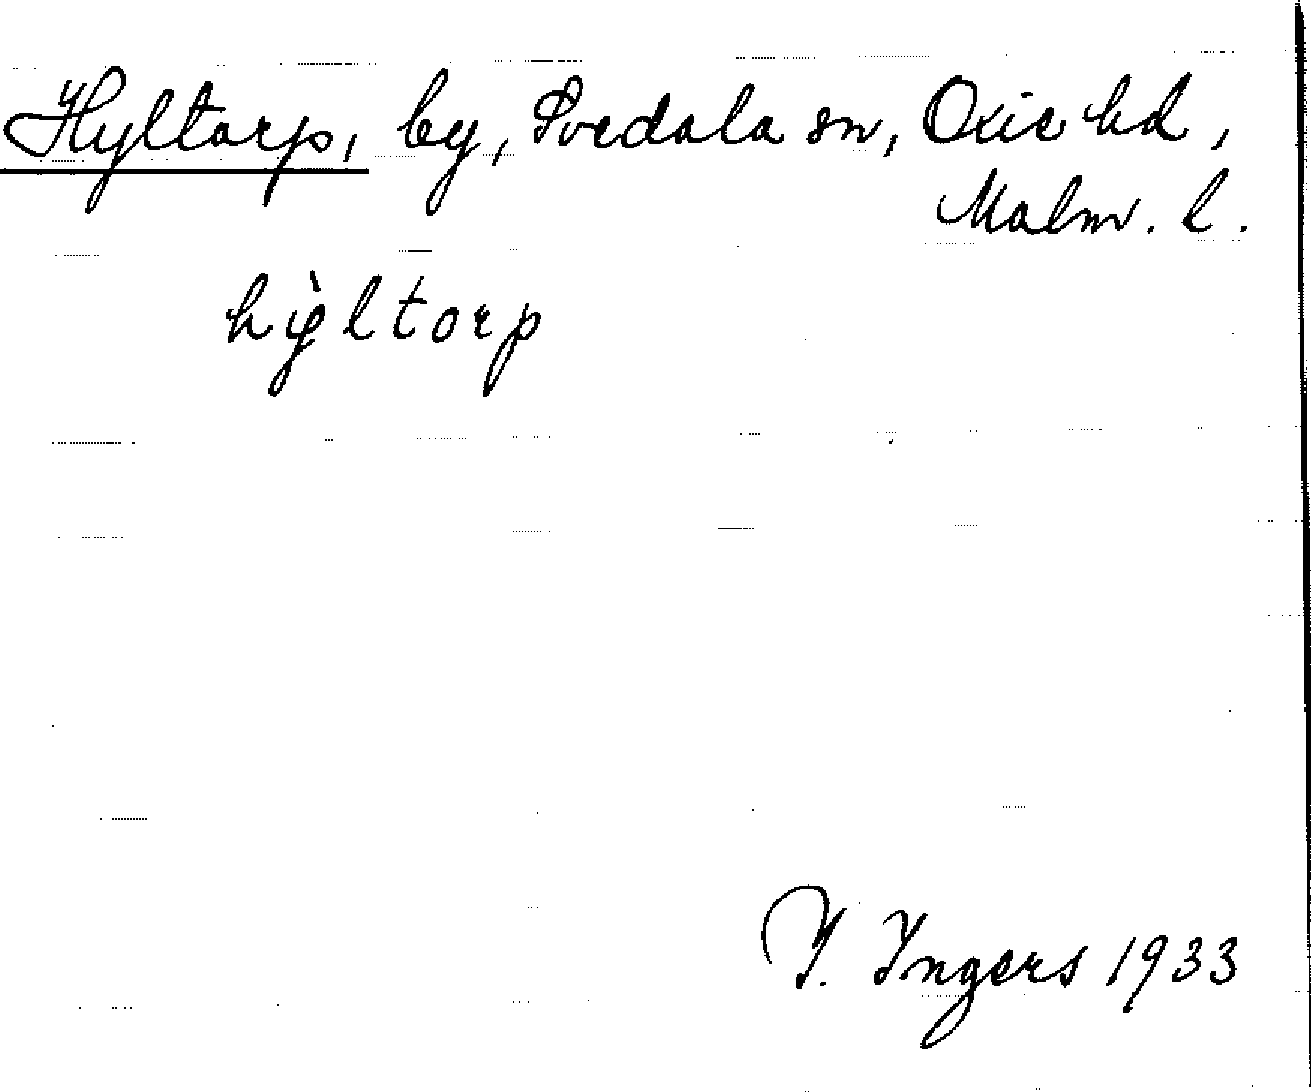 Hyltarp, by, Svedala sn, Oxie hd,
Malm. l.
hỳltorp
I. Ingers 1933